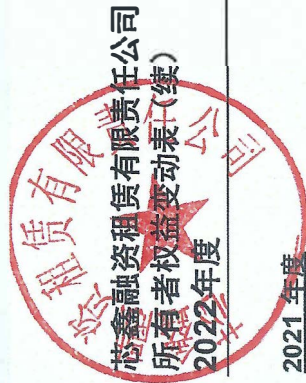 芯鑫融资租赁有限责任公司
所有者权益变动表(续)
2022年度
2021 年度
租赁有限
公司